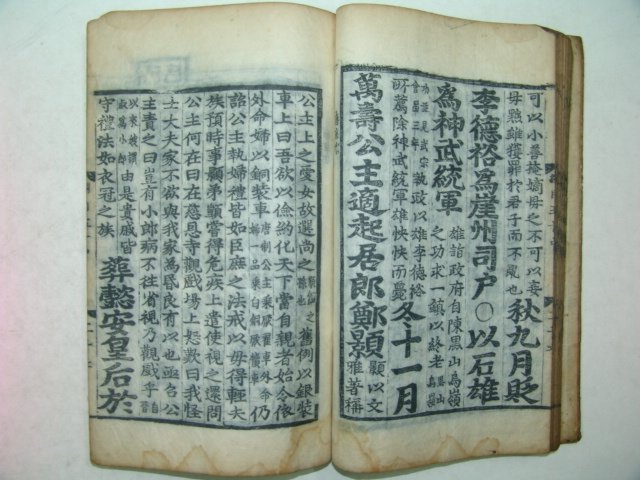 可以小善掩嫡母之不可以妾
母黜雖獲罪於君子而不 也
秋九月貶
李德裕爲崖州司户〇以石雄
爲神武統軍
雄詣政府自陳黑山烏嶺
之功求一鎮以終老
功並見武宗
會昌三年
執政以雄李德裕
所薦除神武統軍雄怏怏而薨
冬十一月
萬壽公主適起居郎鄭顥
顥以文
雅著稱
公主上之愛女故選尚之
舊例以銀裝
車上曰吾欲以儉約化天下當自親者始令依
外命婦以銅裝車
仍
詔公主執婦禮皆如臣庶之法戒以毋得輕夫
族預時事顥弟顗嘗得危疾上遣使視之還問
公主何在曰在慈恩寺觀戲場上怒歎曰我怪
士大夫家不欲與我家爲昏良有以也亟召公
主責之曰豈有小郎病不往省視乃觀戲乎
叔爲小郎
由是貴戚皆
守禮法如衣冠之族
葬懿安皇后於